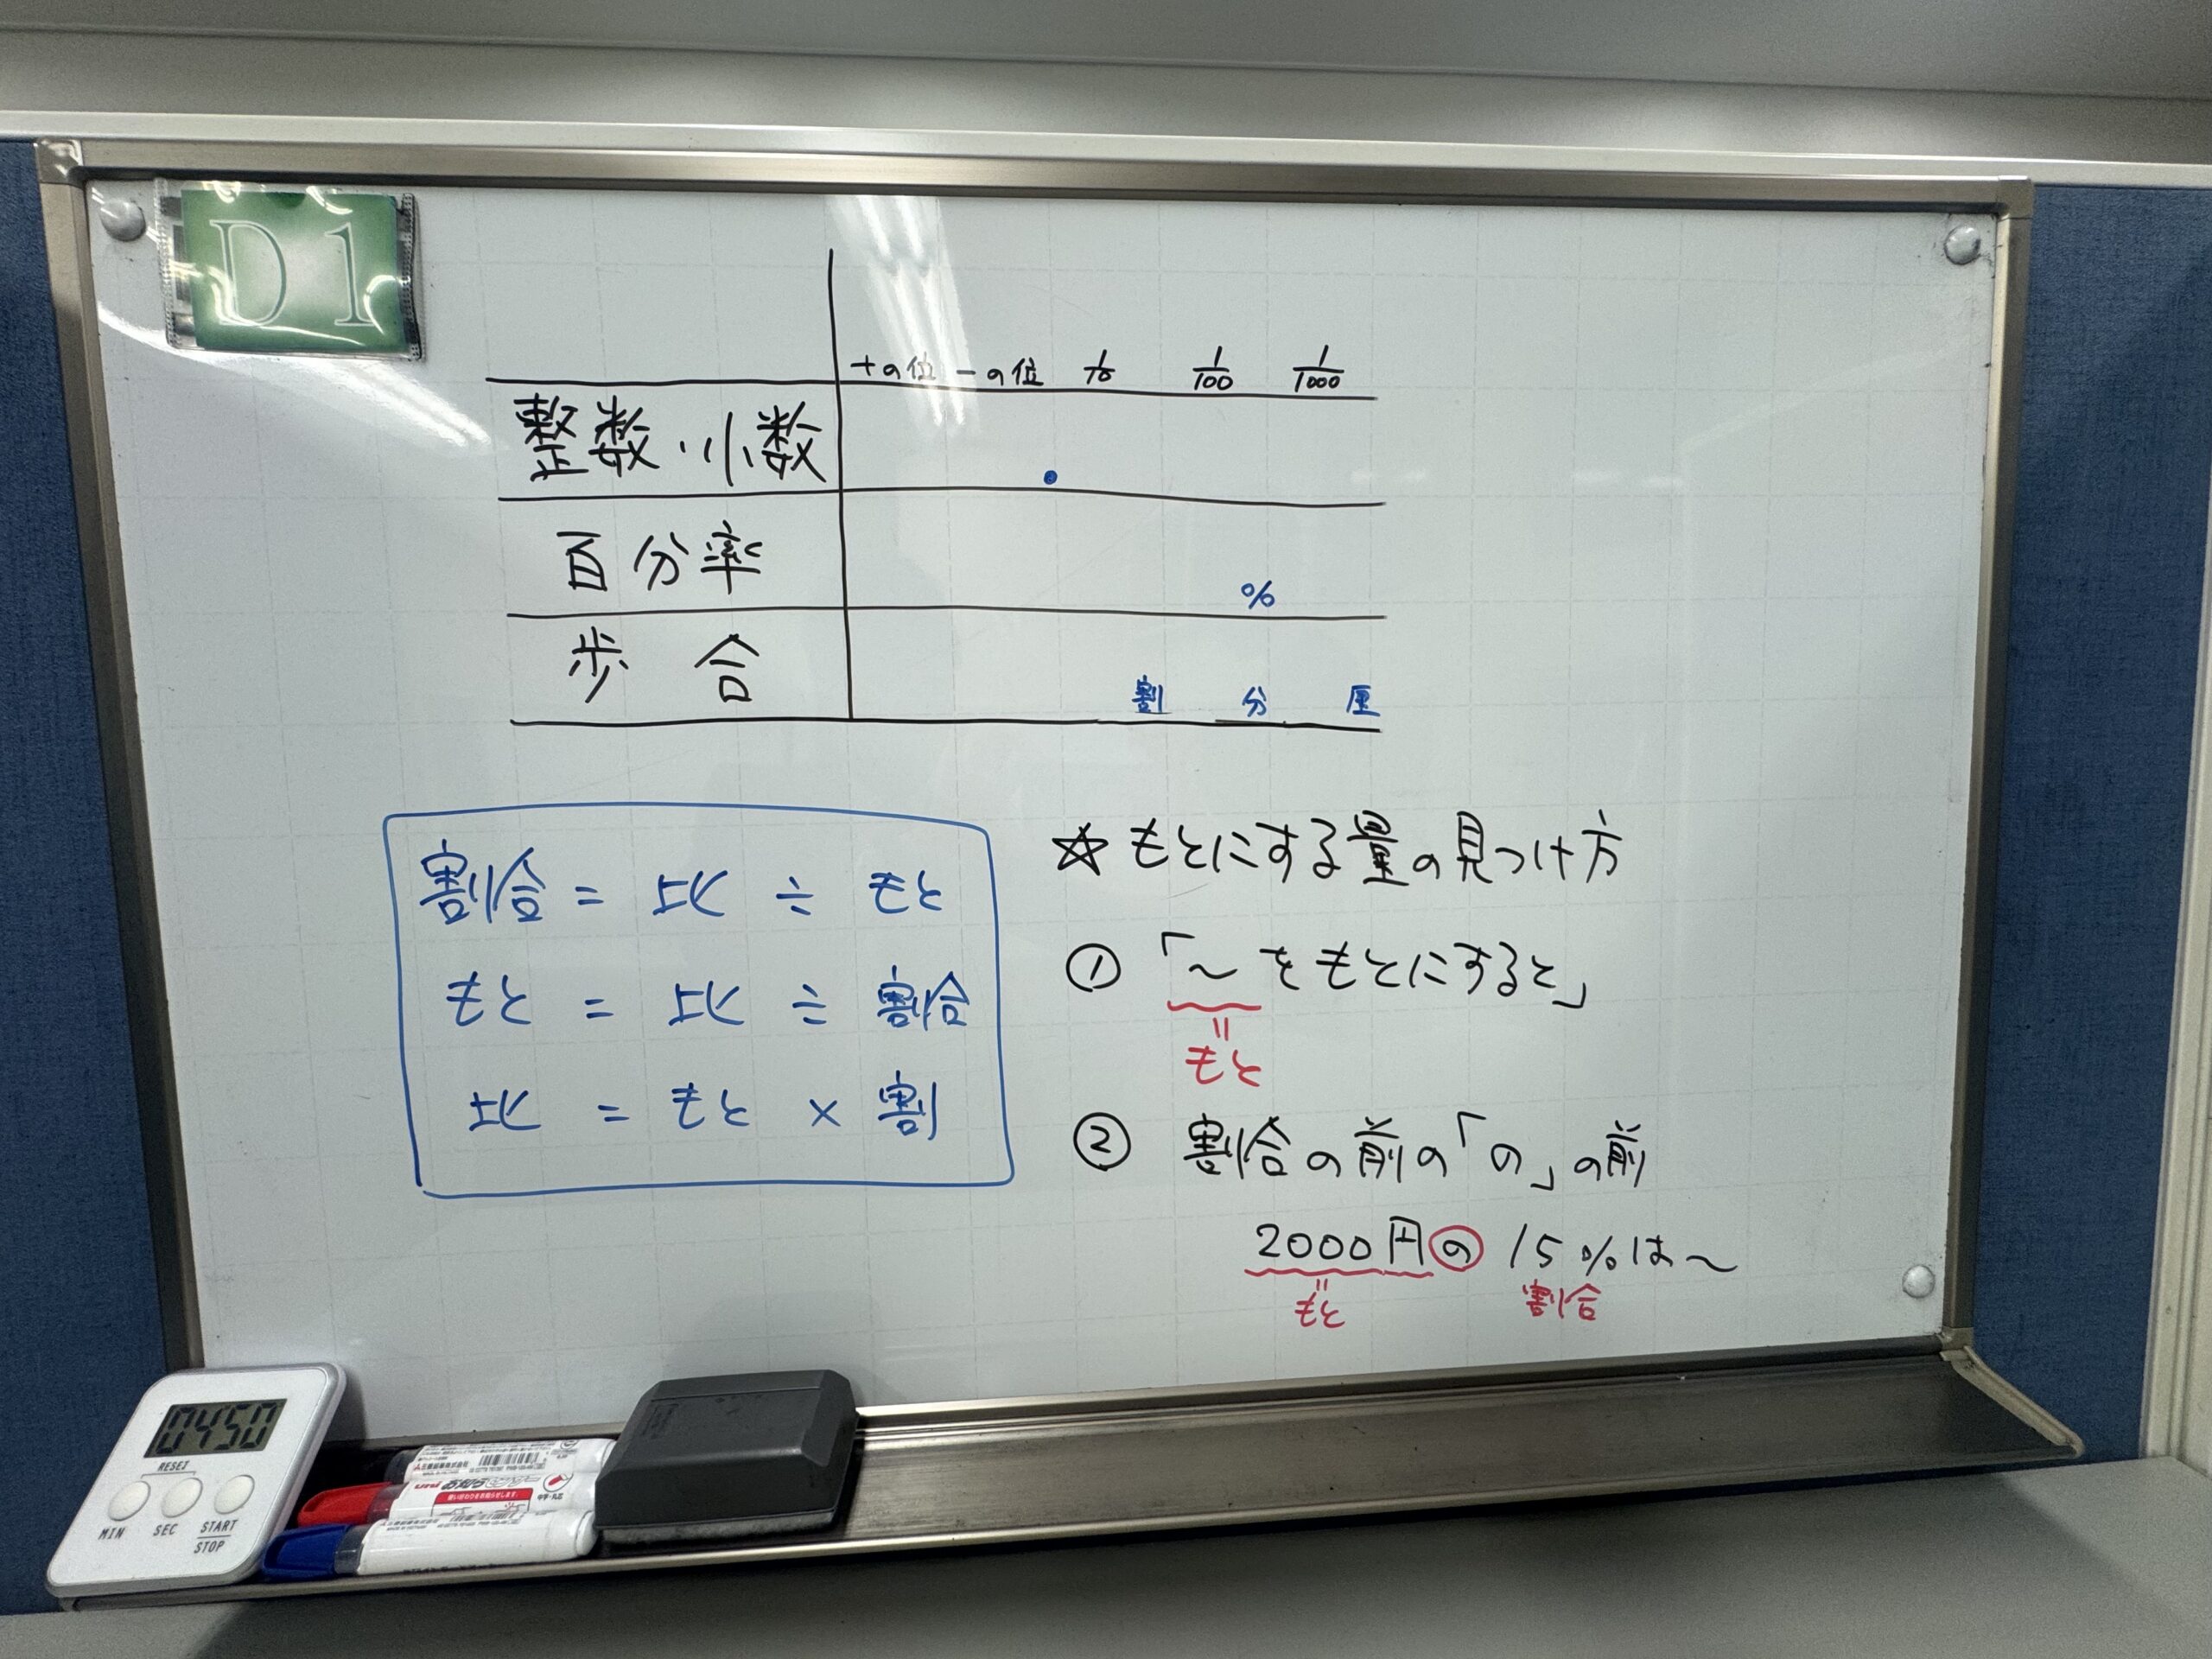 D1
十の位 一の位 1/10 1/100 1/1000
整数・小数 .
百分率 %
歩合 割 分 厘
割合 = 比 ÷ もと
もと = 比 ÷ 割合
比 = もと × 割
☆ もとにする量の見つけ方
① 「～をもとにすると」
=
もと
② 割合の前の「の」の前
2000円の 15%は～
= 
もと 割合
04 50
RESET
MIN SEC START
STOP
uni